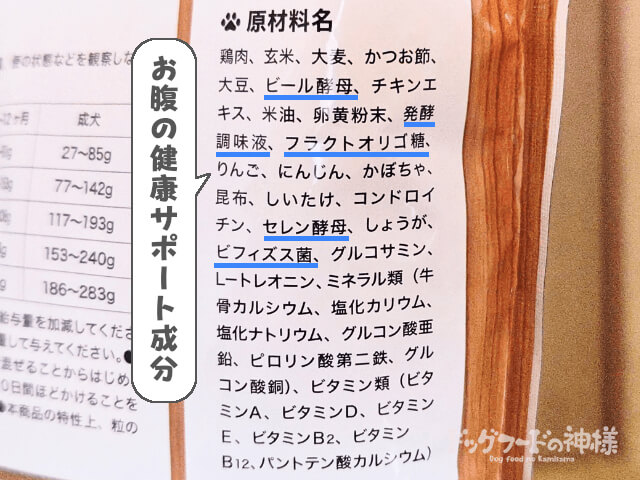 原材料名
鶏肉、玄米、大麦、かつお節、
大豆、ビール酵母、チキンエ
キス、米油、卵黄粉末、発酵
調味液、フラクトオリゴ糖、
りんご、にんじん、かぼちゃ、
昆布、しいたけ、コンドロイ
チン、セレン酵母、しょうが、
ビフィズス菌、グルコサミン、
L-トレオニン、ミネラル類（牛
骨カルシウム、塩化カリウム、
塩化ナトリウム、グルコン酸亜
鉛、ピロリン酸第二鉄、グル
コン酸銅）、ビタミン類（ビタ
ミンA、ビタミンD、ビタミン
E、ビタミンB2、ビタミン
B12、パントテン酸カルシウム）
お腹の健康サポート成分
便の状態などを観察しな
ヶ月 成犬
27〜85g
77〜142g
117〜193g
153〜240g
186〜283g
給与量を加減してくださ
量して与えてください。●
混ぜることからはじめ
0日間ほどかけることを
●本商品の特性上、粒の
ドッグフードの神様
Dog food no Kamisama